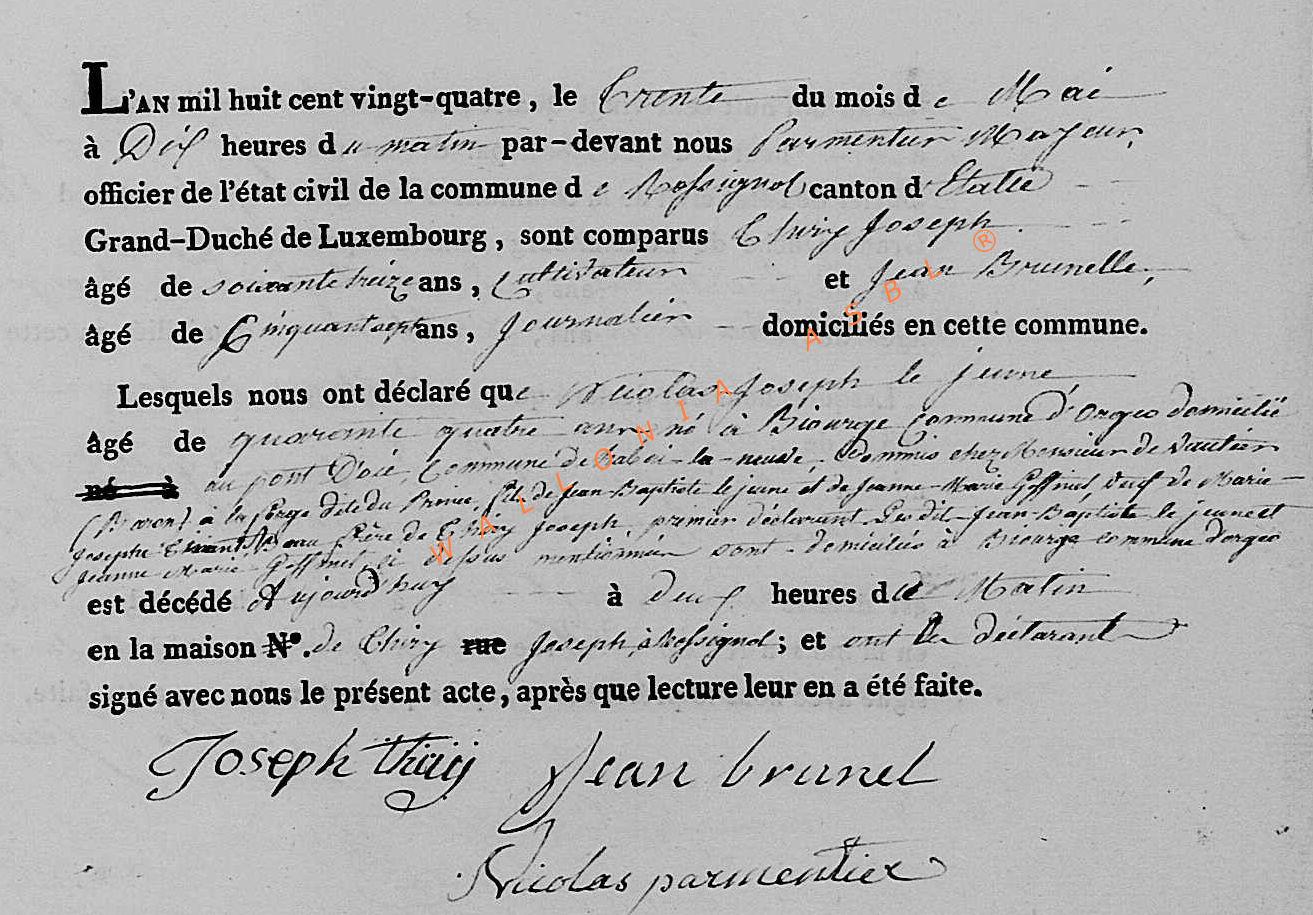 L'AN mil huit cent vingt-quatre, le trente du mois de Mai
à Dix heures du matin par-devant nous Parmentier Mayeur,
officier de l'état civil de la commune de Rossignol canton d'Etalle
Grand-Duché de Luxembourg, sont comparus Thiry Joseph
âgé de soixante treize ans, Cultivateur et Jean Brunelle,
âgé de Cinquant sept ans, Journalier domiciliés en cette commune.
Lesquels nous ont déclaré que Nicolas Joseph le jeune
âgé de quarente quatre ans né à Biourge Commune d'Orgeo domicilié
né à au pont D'oie, Commune de habai-la-neuve, Commis chez Monsieur de Vautier
(Baron) à la forge dite du Prince, fils de Jean-Baptiste le jeune et de Jeanne-Marie Goffinet, veuf de Marie-
Josephe Beau Père de Thiry Joseph premier déclarant Les dit Jean-Baptiste le jeune et
Jeanne Marie Goffinet ci dessus mentionnés sont domiciliés à Biourge commune d'orgeo
est décédé Aujourd'huy à deux heures de Matin
en la maison N°. de Thiry rue Joseph, à Rossignol; et ont les déclarant
signé avec nous le présent acte, après que lecture leur en a été faite.
Joseph thiry Jean brunel
Nicolas parmentier
WALLONIA ASBL ®